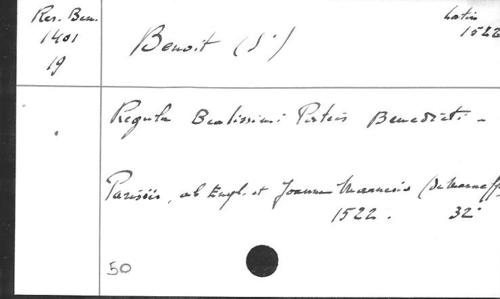 Res. Ben.
1401
19
Latin
1522
Benoit (St)
Regula Beatissimi Patris Benedicti -
Parisiis, ab Engl. et Joanne Marnesio (de Marneff
1522. 32°
50